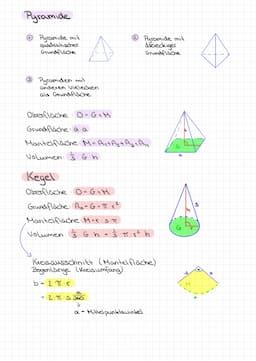 Pyramide
① Pyramide mit
quadratischer
Grundfläche
② Pyramide mit
3eckiger
Grundfläche
③ Pyramiden mit
anderen Vielecken
als Grundfläche
Oberfläche O = G + M
Grundfläche a · a
Mantelfläche M = A₁ + A₂ + A₃ + A₄
Volumen 1/3 G · h
Kegel
Oberfläche O = G + M
Grundfläche A₀ = G = π · r²
Mantelfläche M = r · s · π
Volumen 1/3 · G · h = 1/3 · π · r² · h
Kreisausschnitt (Mantelfläche)
Bogenlänge (Kreisumfang)
b = 2 · π · r
= 2 · π · s · α/360
α - Mittelpunktswinkel